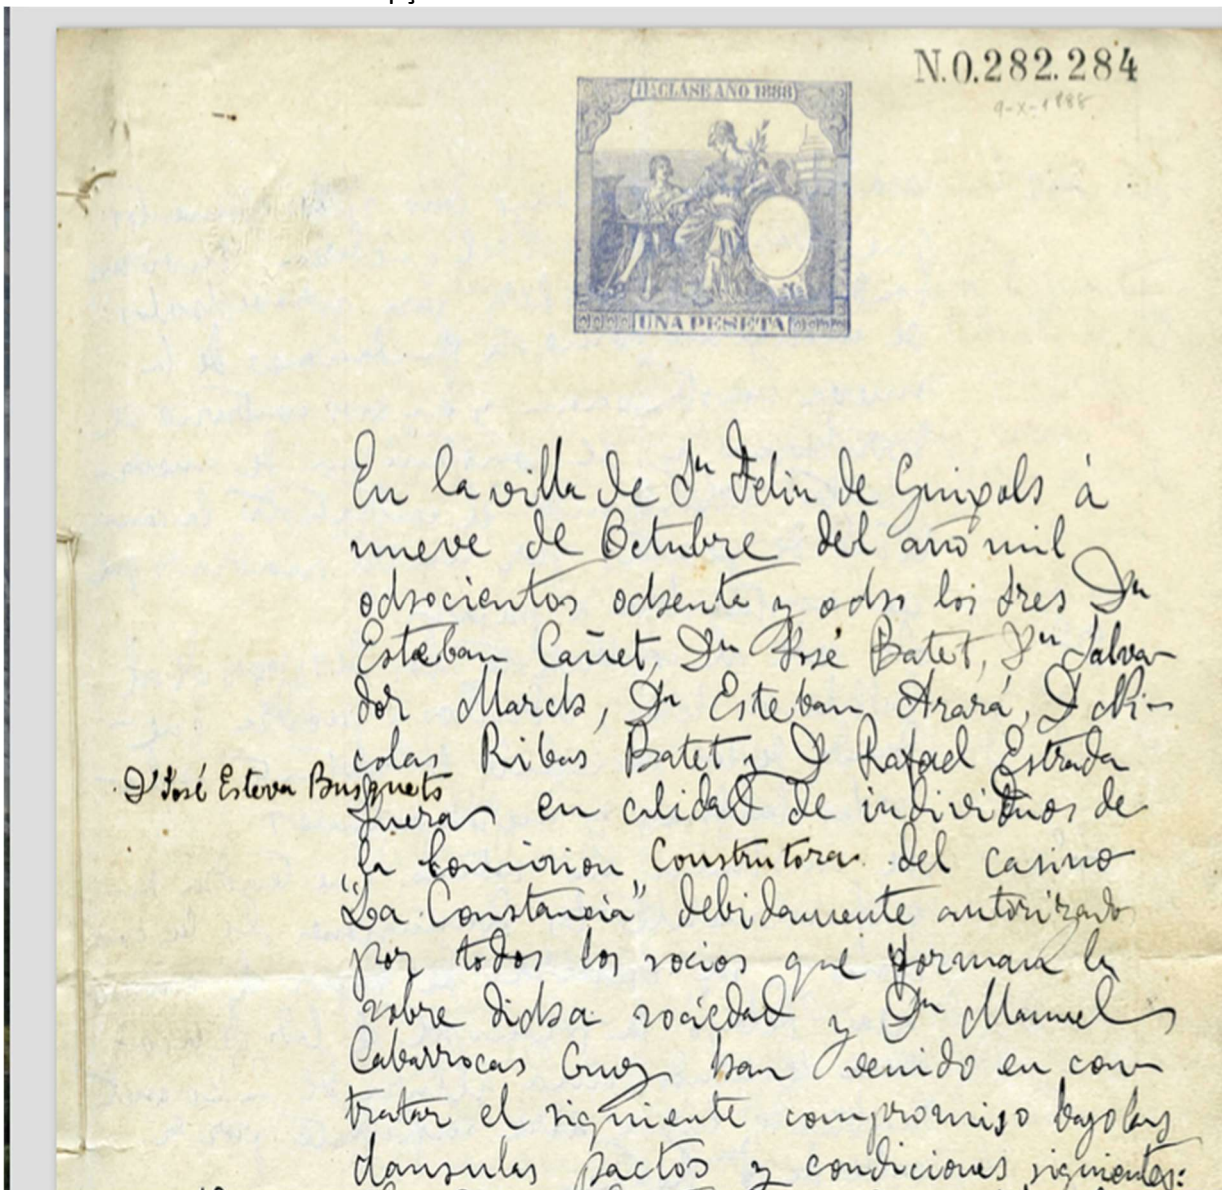 N.0.282.284
9-X-1888
11ª CLASE AÑO 1888
UNA PESETA
En la villa de Sn Feliu de Guixols á
nueve de Octubre del año mil
ochocientos ochenta y ocho los Sres Dn
Esteban Cañet, Dn José Batet, Dn Salva-
dor March, Dn Esteban Arará, D Ni-
colas Ribas Batet y D Rafael Estrada
D José Esteva Busquets
en calidad de individuos de
la Comision Construtora del casino
"La Constancia" debidamente autorizado
por todos los socios que forman la
sobre dicha sociedad y Dn Manuel
Cabarrocas Cruz han venido en con-
tratar el siguiente compromiso bajo las
clausulas pactos y condiciones siguientes: